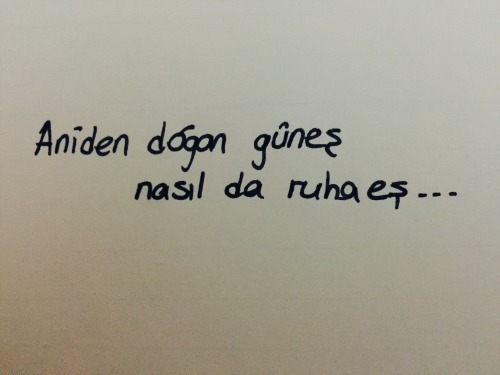 Aniden doğan güneş
nasıl da ruha eş...